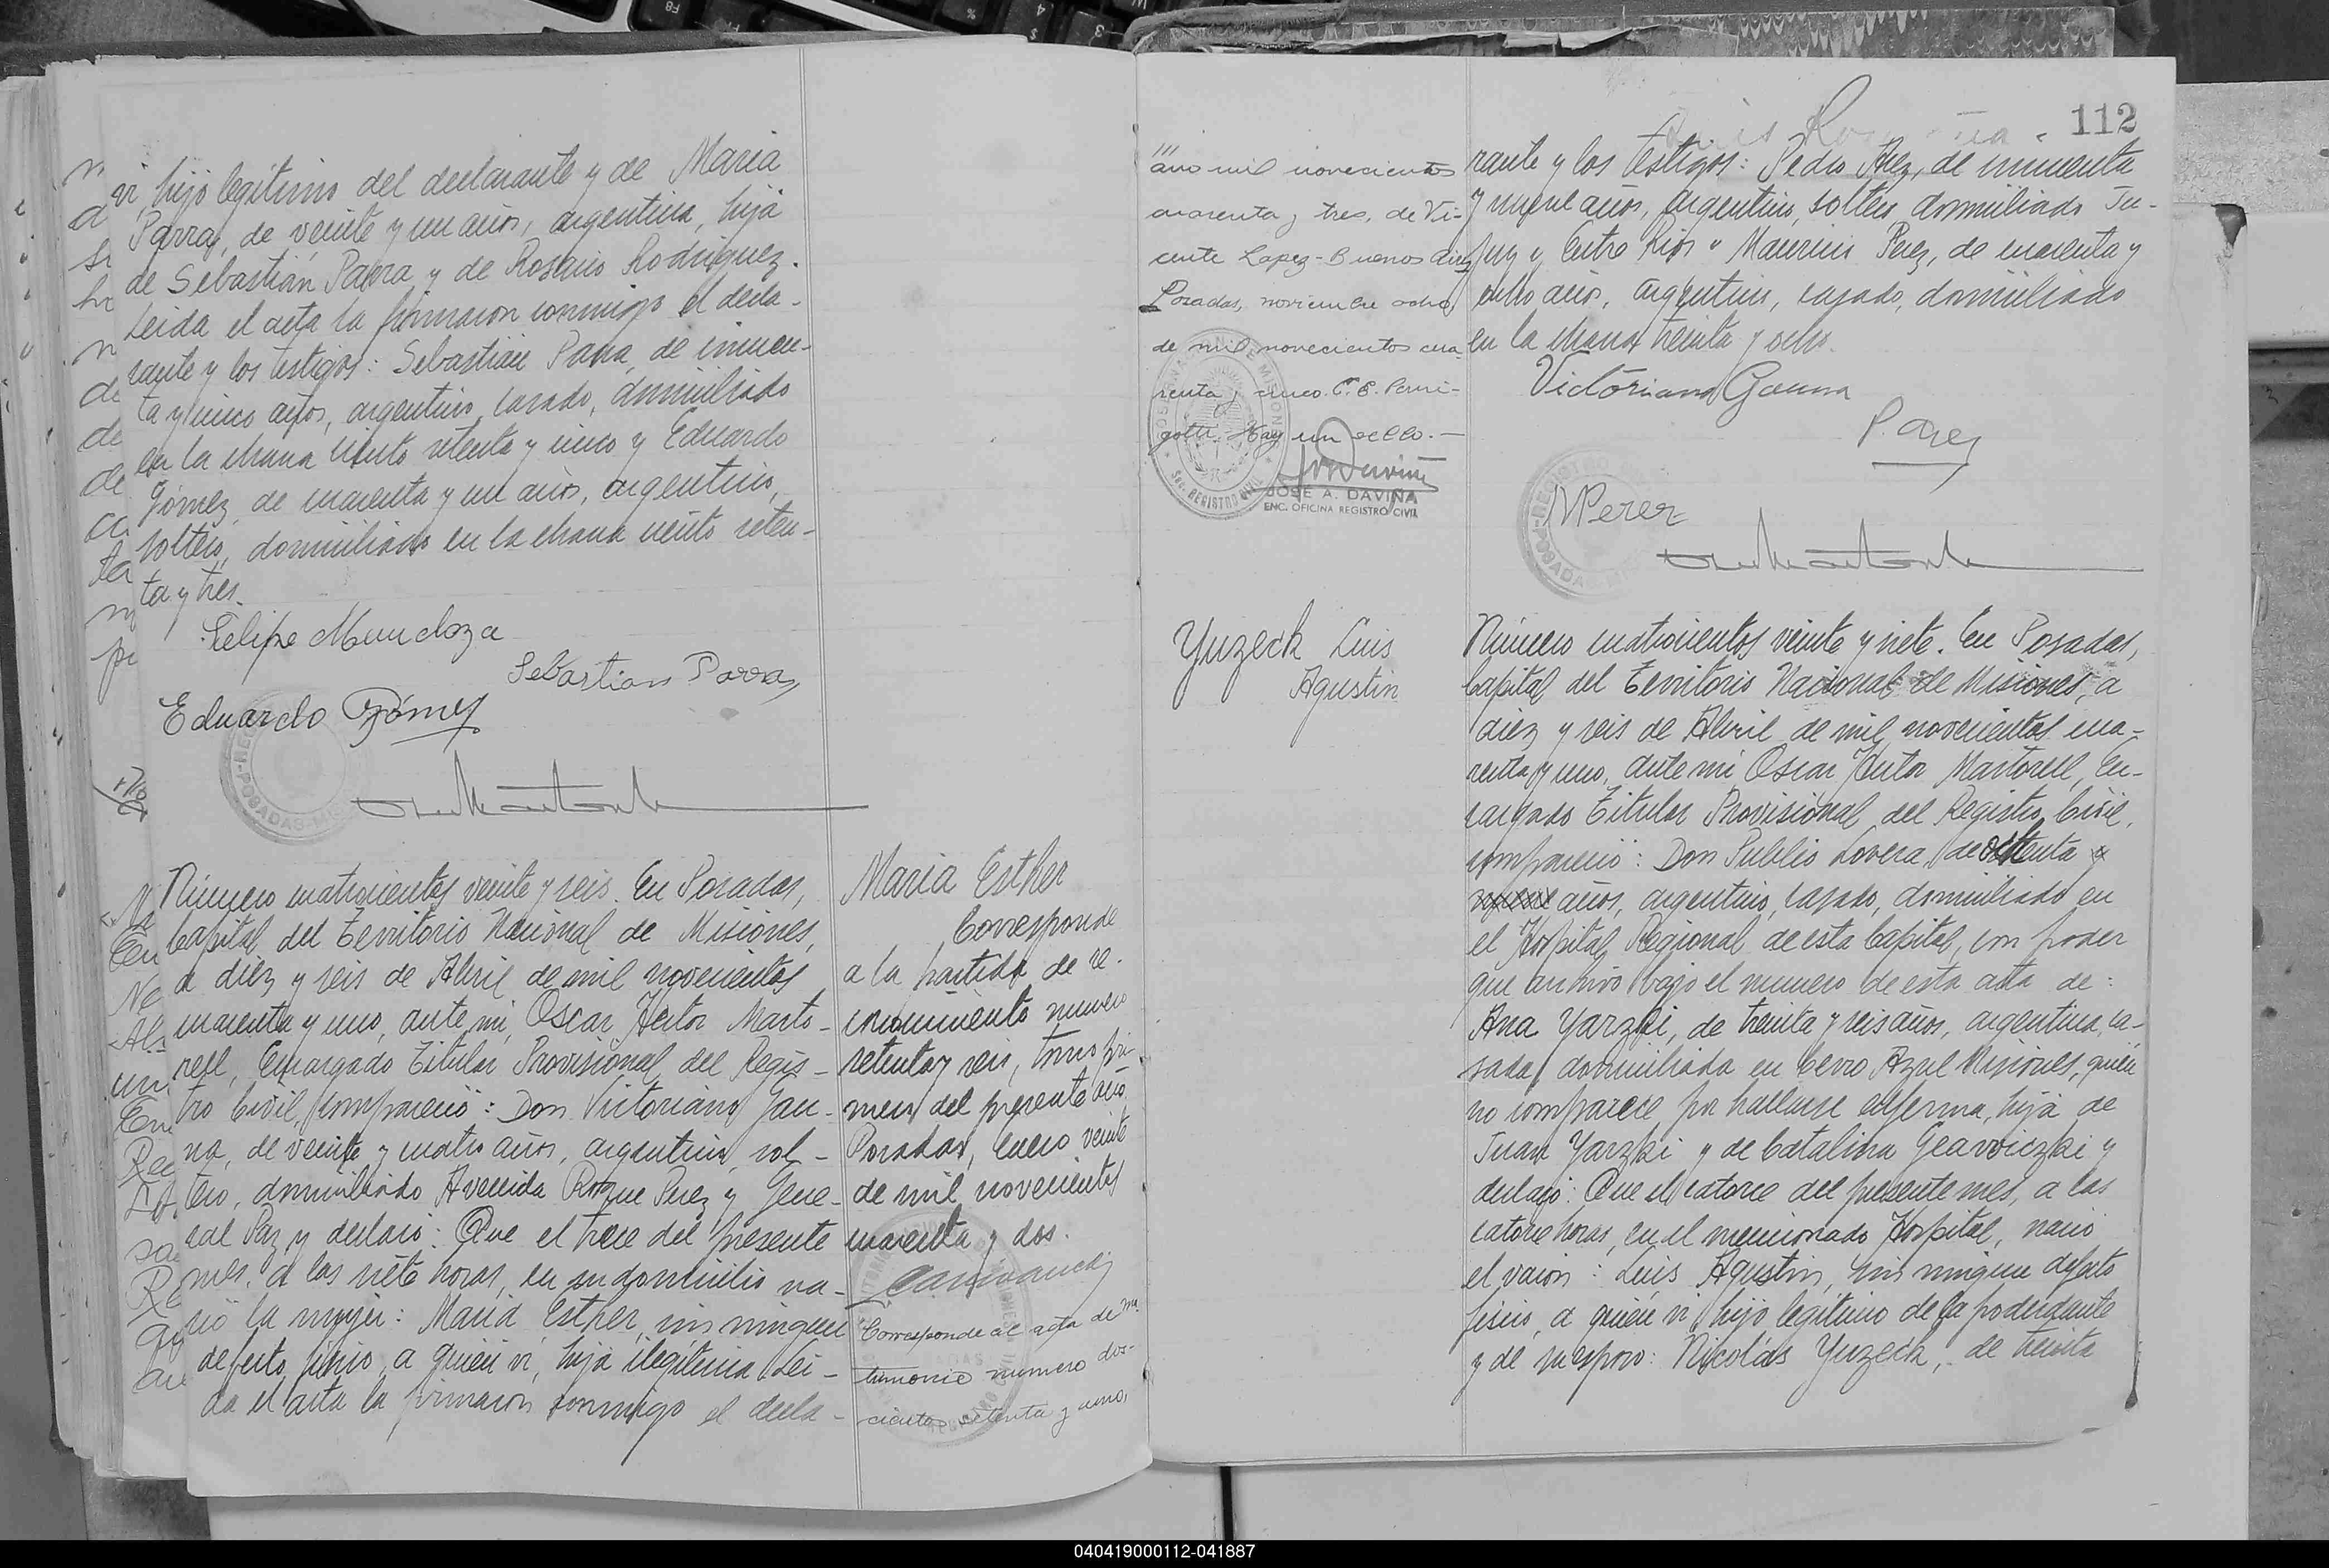 vi, hijo legítimo del declarante y de Maria
Parra, de veinte y un años, argentina, hija
de Sebastián Parra y de Rosario Rodriguez.
Leida el acta la firmaron conmigo el decla-
rante y los testigos: Sebastián Parra, de cincuen-
ta y cinco años, argentino, casado, domiciliado
en la chacra ciento setenta y cinco y Eduardo
Gómez, de cuarenta y un años, argentino,
soltero, domiciliado en la chacra ciento seten-
ta y tres.
Felipe Mendoza
Sebastian Parra
Eduardo Gómez
Número cuatrocientos veinte y seis. En Posadas,
Capital del Territorio Nacional de Misiones,
a diez y seis de Abril de mil novecientos
cuarenta y uno, ante mi, Oscar Héctor Marto-
rell, Encargado Titular Provisional del Regis-
tro Civil, compareció: Don Victoriano Gau-
na, de veinte y cuatro años, argentino, sol-
tero, domiciliado Avenida Roque Perez y Gene-
ral Paz y declaró: Que el trece del presente
mes, a las siete horas, en su domicilio na-
ció la mujer: Maria Esther, sin ningun
defecto físico, a quien vi, hija ilegítima. Lei-
da el acta la firmaron conmigo el decla-
Maria Esther
Corresponde
a la partida de re-
conocimiento número
setenta y seis, tomo pri-
mero del presente año.
Posadas, Enero veinte
de mil novecientos
cuarenta y dos.
Corresponde al acta de ma-
trimonio numero dos-
cientos setenta y uno,
112
///
año mil novecientos
cuarenta y tres, de Vi-
cente Lopez-Buenos Aires
Posadas, noviembre ocho
de mil novecientos cua-
renta y cinco. C. E. Parri-
gotti. Hay un sello.—
JOSÉ A. DAVIÑA
ENC. OFICINA REGISTRO CIVIL
rante y los testigos: Pedro Paez, de cincuenta
y nueve años, argentino, soltero domiciliado Ju-
juy y Entre Rios y Mauricio Perez, de cuarenta y
ocho años, argentino, casado, domiciliado
en la chacra treinta y ocho.
Victoriano Gauna
P. Paez
M Perez
Yuzeck Luis
Agustin
Número cuatrocientos veinte y siete. En Posadas,
Capital del Territorio Nacional de Misiones, a
diez y seis de Abril de mil novecientos cua-
renta y uno, ante mi Oscar Héctor Martorell, En-
cargado Titular Provisional del Registro Civil,
compareció: Don Publio Lovera, de ochenta y
años, argentino, casado, domiciliado en
el Hospital Regional de esta Capital, con poder
que archivo bajo el numero de esta acta de:
Ana Yarzki, de treinta y seis años, argentina, ca-
sada, domiciliada en Cerro Azul Misiones, quien
no comparece por hallarse enferma, hija de
Juan Yarzki y de Catalina Gearviczki y
declaró: Que el catorce del presente mes, a las
catorce horas, en el mencionado Hospital, nació
el varón: Luis Agustin, sin ningun defecto
físico, a quien vi, hijo legítimo de la poderdante
y de su esposo: Nicolás Yuzeck, de treinta
040419000112-041887